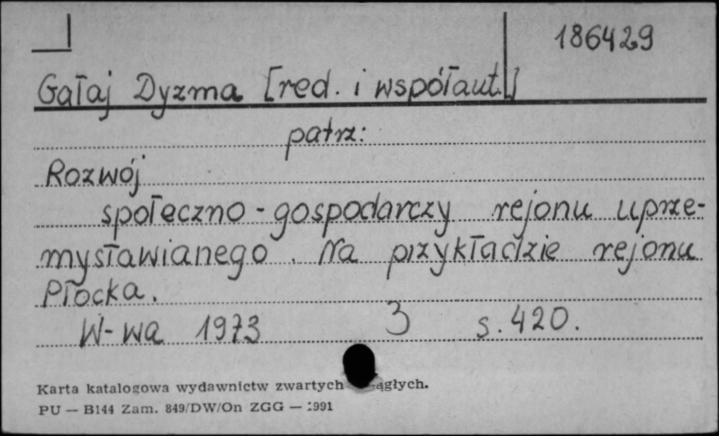 186429
Gałaj Dyzma [red. i współaut.]
patrz:
Rozwój
społeczno-gospodarczy rejonu uprze-
mysławianego. Na przykładzie rejonu
Płocka.
W-wa 1973 3 s. 420.
Karta katalogowa wydawnictw zwartych
PU — B144 Zam. 849/DW/On ZGG — 1991